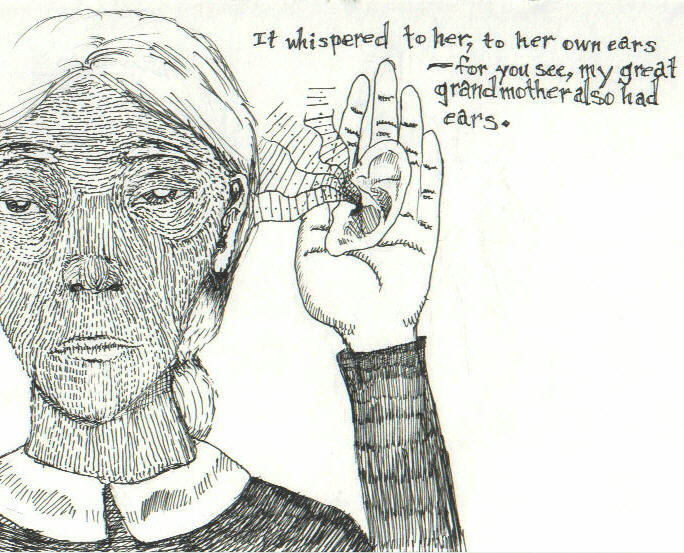 It whispered to her, to her own ears
—for you see, my great
grandmother also had
ears.